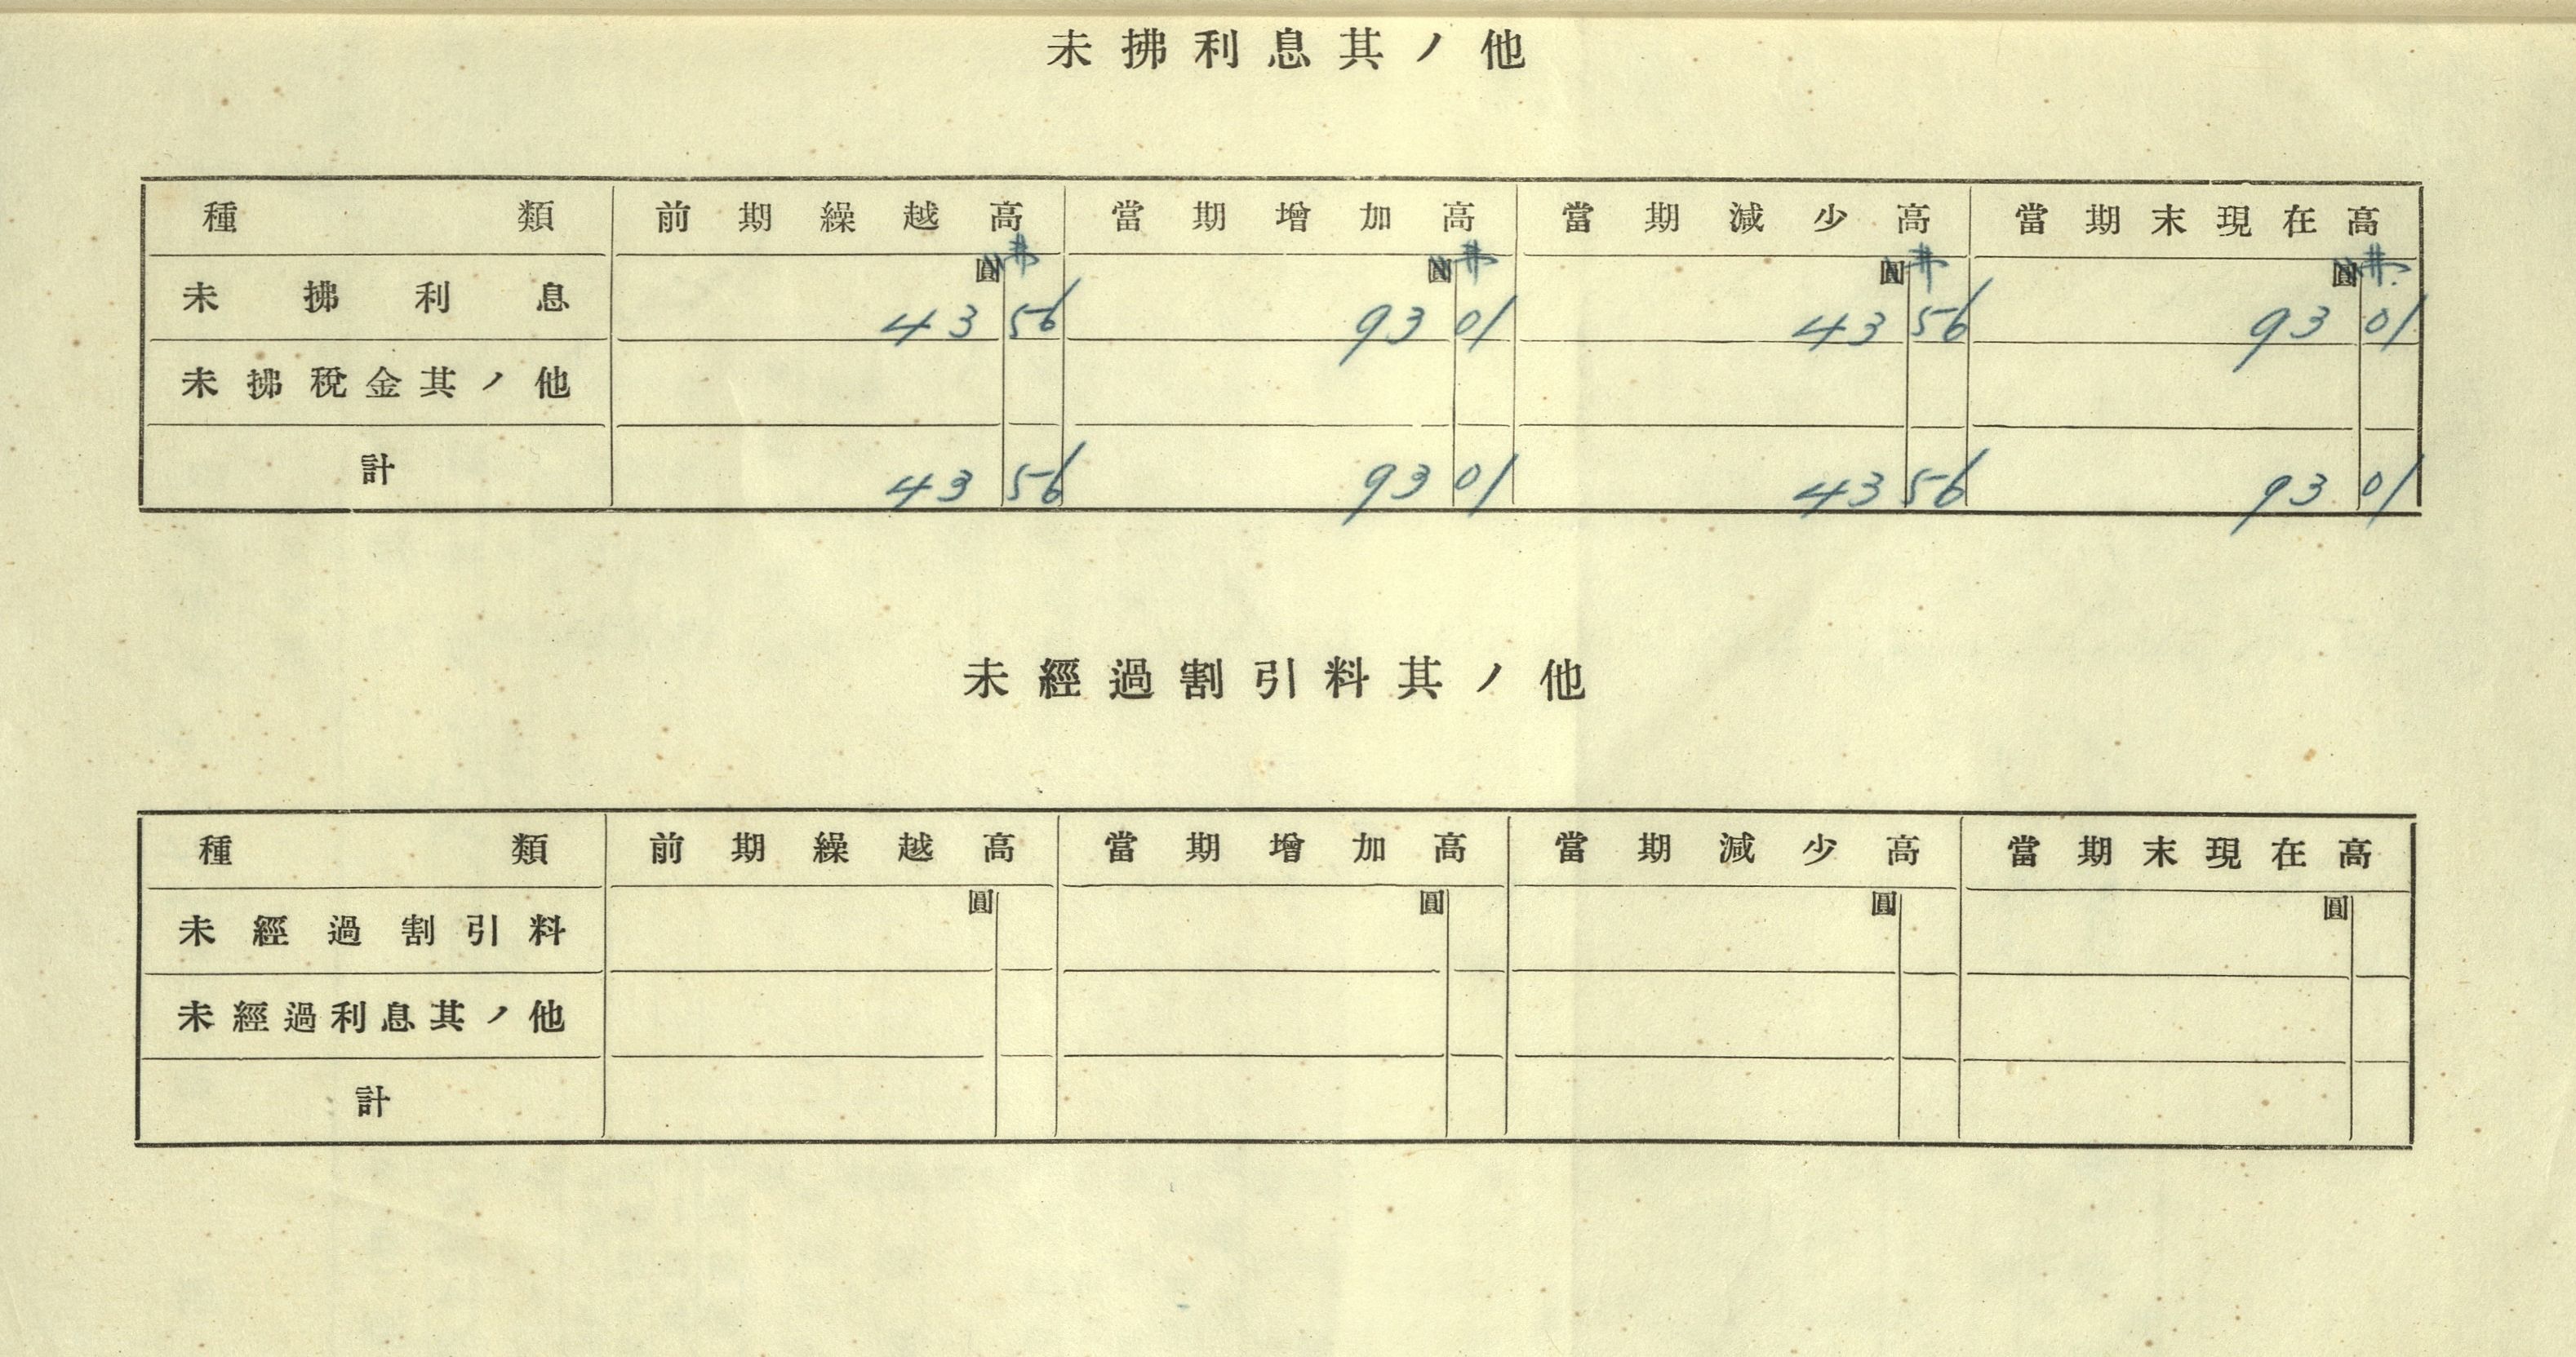 未拂利息其ノ他
種類 前期繰越高 當期增加高 當期減少高 當期末現在高
圓 圓 圓 圓
未拂利息 43 56 93 01 43 56 93 01
未拂稅金其ノ他
計 43 56 93 01 43 56 93 01
未經過割引料其ノ他
種類 前期繰越高 當期增加高 當期減少高 當期末現在高
圓 圓 圓 圓
未經過割引料
未經過利息其ノ他
計